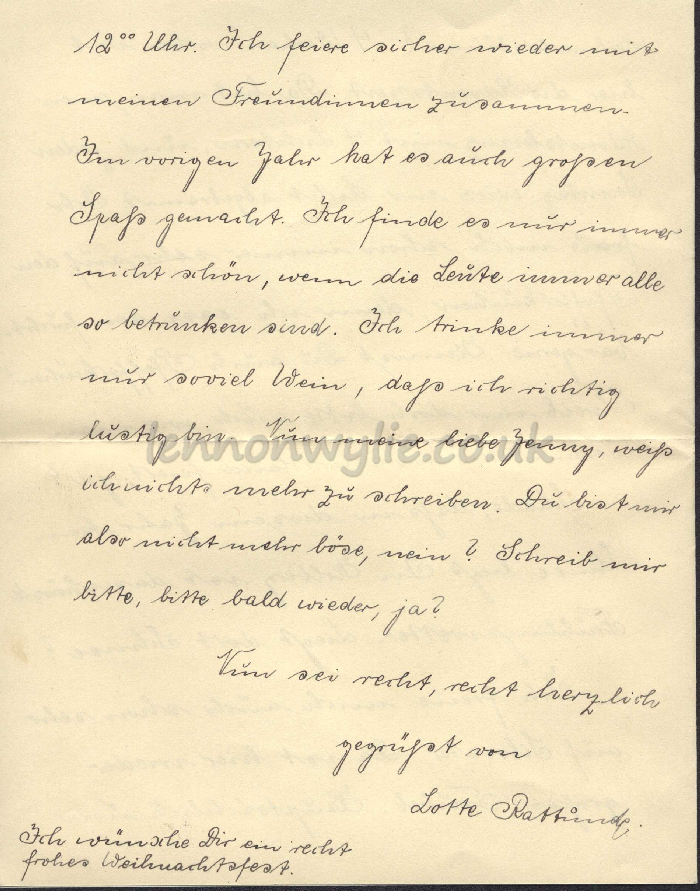 12⁰⁰ Uhr. Ich feiere sicher wieder mit
meinen Freundinnen zusammen.
Im vorigen Jahr hat es auch großen
Spaß gemacht. Ich finde es nur immer
nicht schön, wenn die Leute immer alle
so betrunken sind. Ich trinke immer
nur soviel Wein, daß ich richtig
lustig bin. Nun meine liebe Jenny, weiß
ich nichts mehr zu schreiben. Du bist mir
also nicht mehr böse, nein? Schreib mir
bitte, bitte bald wieder, ja?
Nun sei recht, recht herzlich
gegrüßt von
Lotte Rattunde.
Ich wünsche Dir ein recht
frohes Weihnachtsfest.
lennonwylie.co.uk